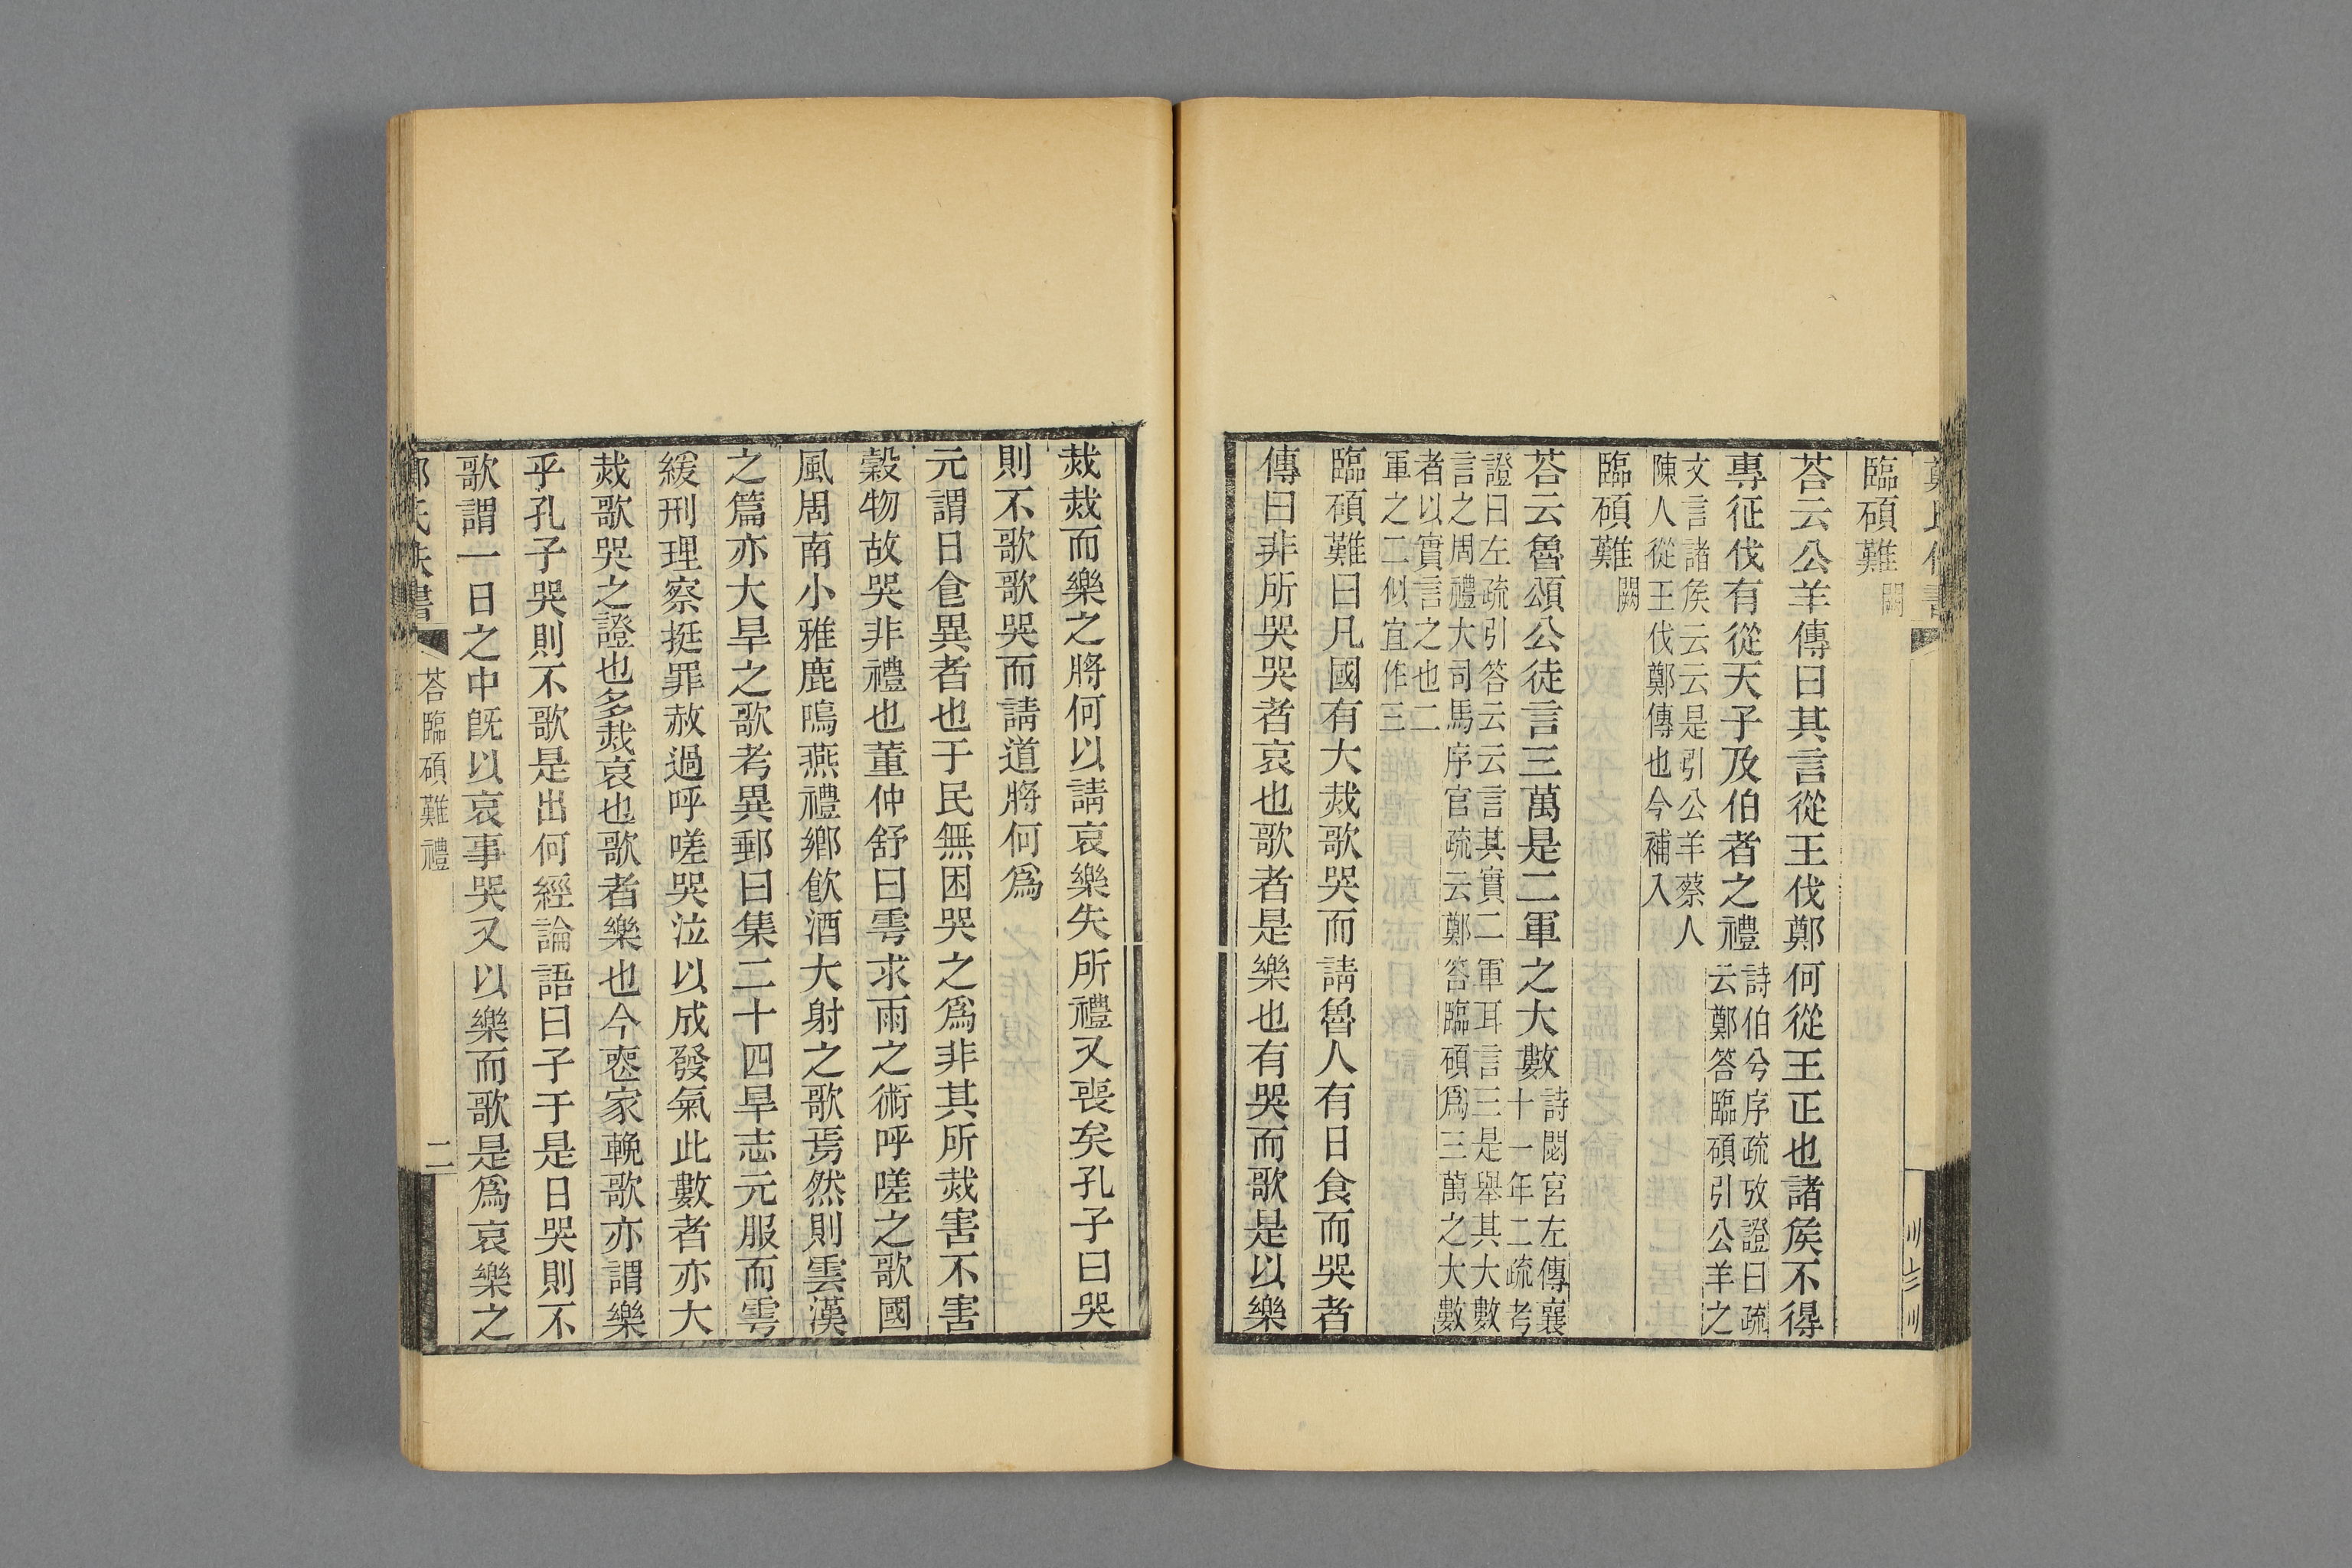 臨碩難闕
荅云公羊傳曰其言從王伐鄭何從王正也諸矦不得
專征伐有從天子及伯者之禮詩伯兮序疏攷證曰疏
云鄭答臨碩引公羊之
文言諸矦云云是引公羊蔡人
陳人從王伐鄭傳也今補入
臨碩難闕
荅云魯頌公徒言三萬是二軍之大數詩閟宮左傳襄
十一年二疏考
證曰左疏引答云云言其實二軍耳言三是舉其大數
言之周禮大司馬序官疏云鄭答臨碩爲三萬之大數
者以實言之也二
軍之二似宜作三
臨碩難曰凡國有大烖歌哭而請魯人有日食而哭者
傳曰非所哭哭者哀也歌者是樂也有哭而歌是以樂
烖烖而樂之將何以請哀樂失所禮又喪矣孔子曰哭
則不歌歌哭而請道將何爲
元謂日食異者也于民無困哭之爲非其所烖害不害
穀物故哭非禮也董仲舒曰雩求雨之術呼嗟之歌國
風周南小雅鹿鳴燕禮鄉飮酒大射之歌焉然則雲漢
之篇亦大旱之歌考異郵曰集二十四旱志元服而雩
緩刑理察挺罪赦過呼嗟哭泣以成發氣此數者亦大
烖歌哭之證也多烖哀也歌者樂也今喪家輓歌亦謂樂
乎孔子哭則不歌是出何經論語曰子于是日哭則不
歌謂一日之中旣以哀事哭又以樂而歌是爲哀樂之
鄭氏佚書 荅臨碩難禮 二